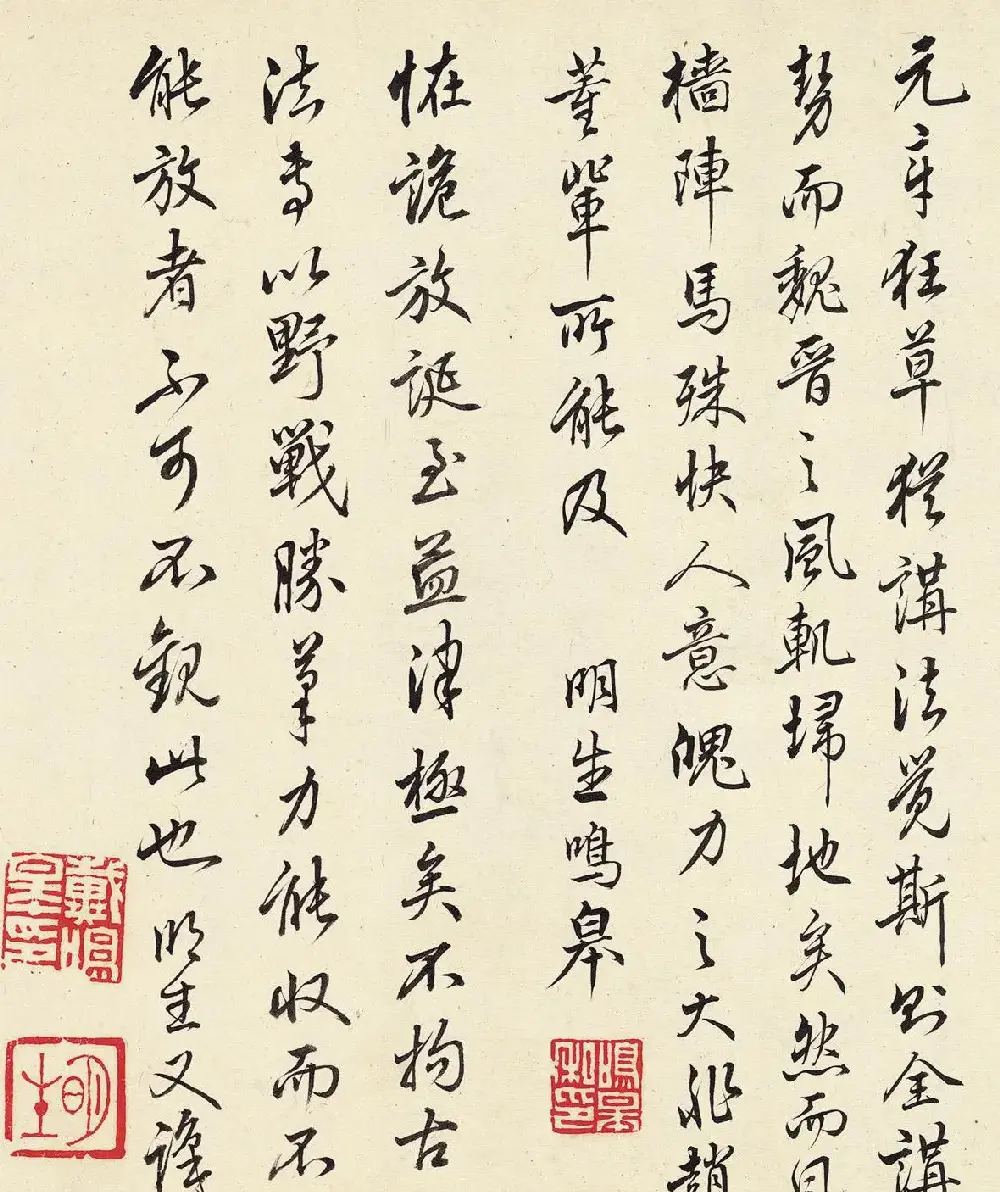 元章狂草猶講法覺斯則全講
勢而魏晉之風軌埽地矣然而風
檣陣馬殊快人意魄力之大非趙
董輩所能及　明生鳴皋
恠詭放誕至益津極矣不拘古
法専以野戰勝筆力能收而不
能放者不可不觀此也 明生又識
明生